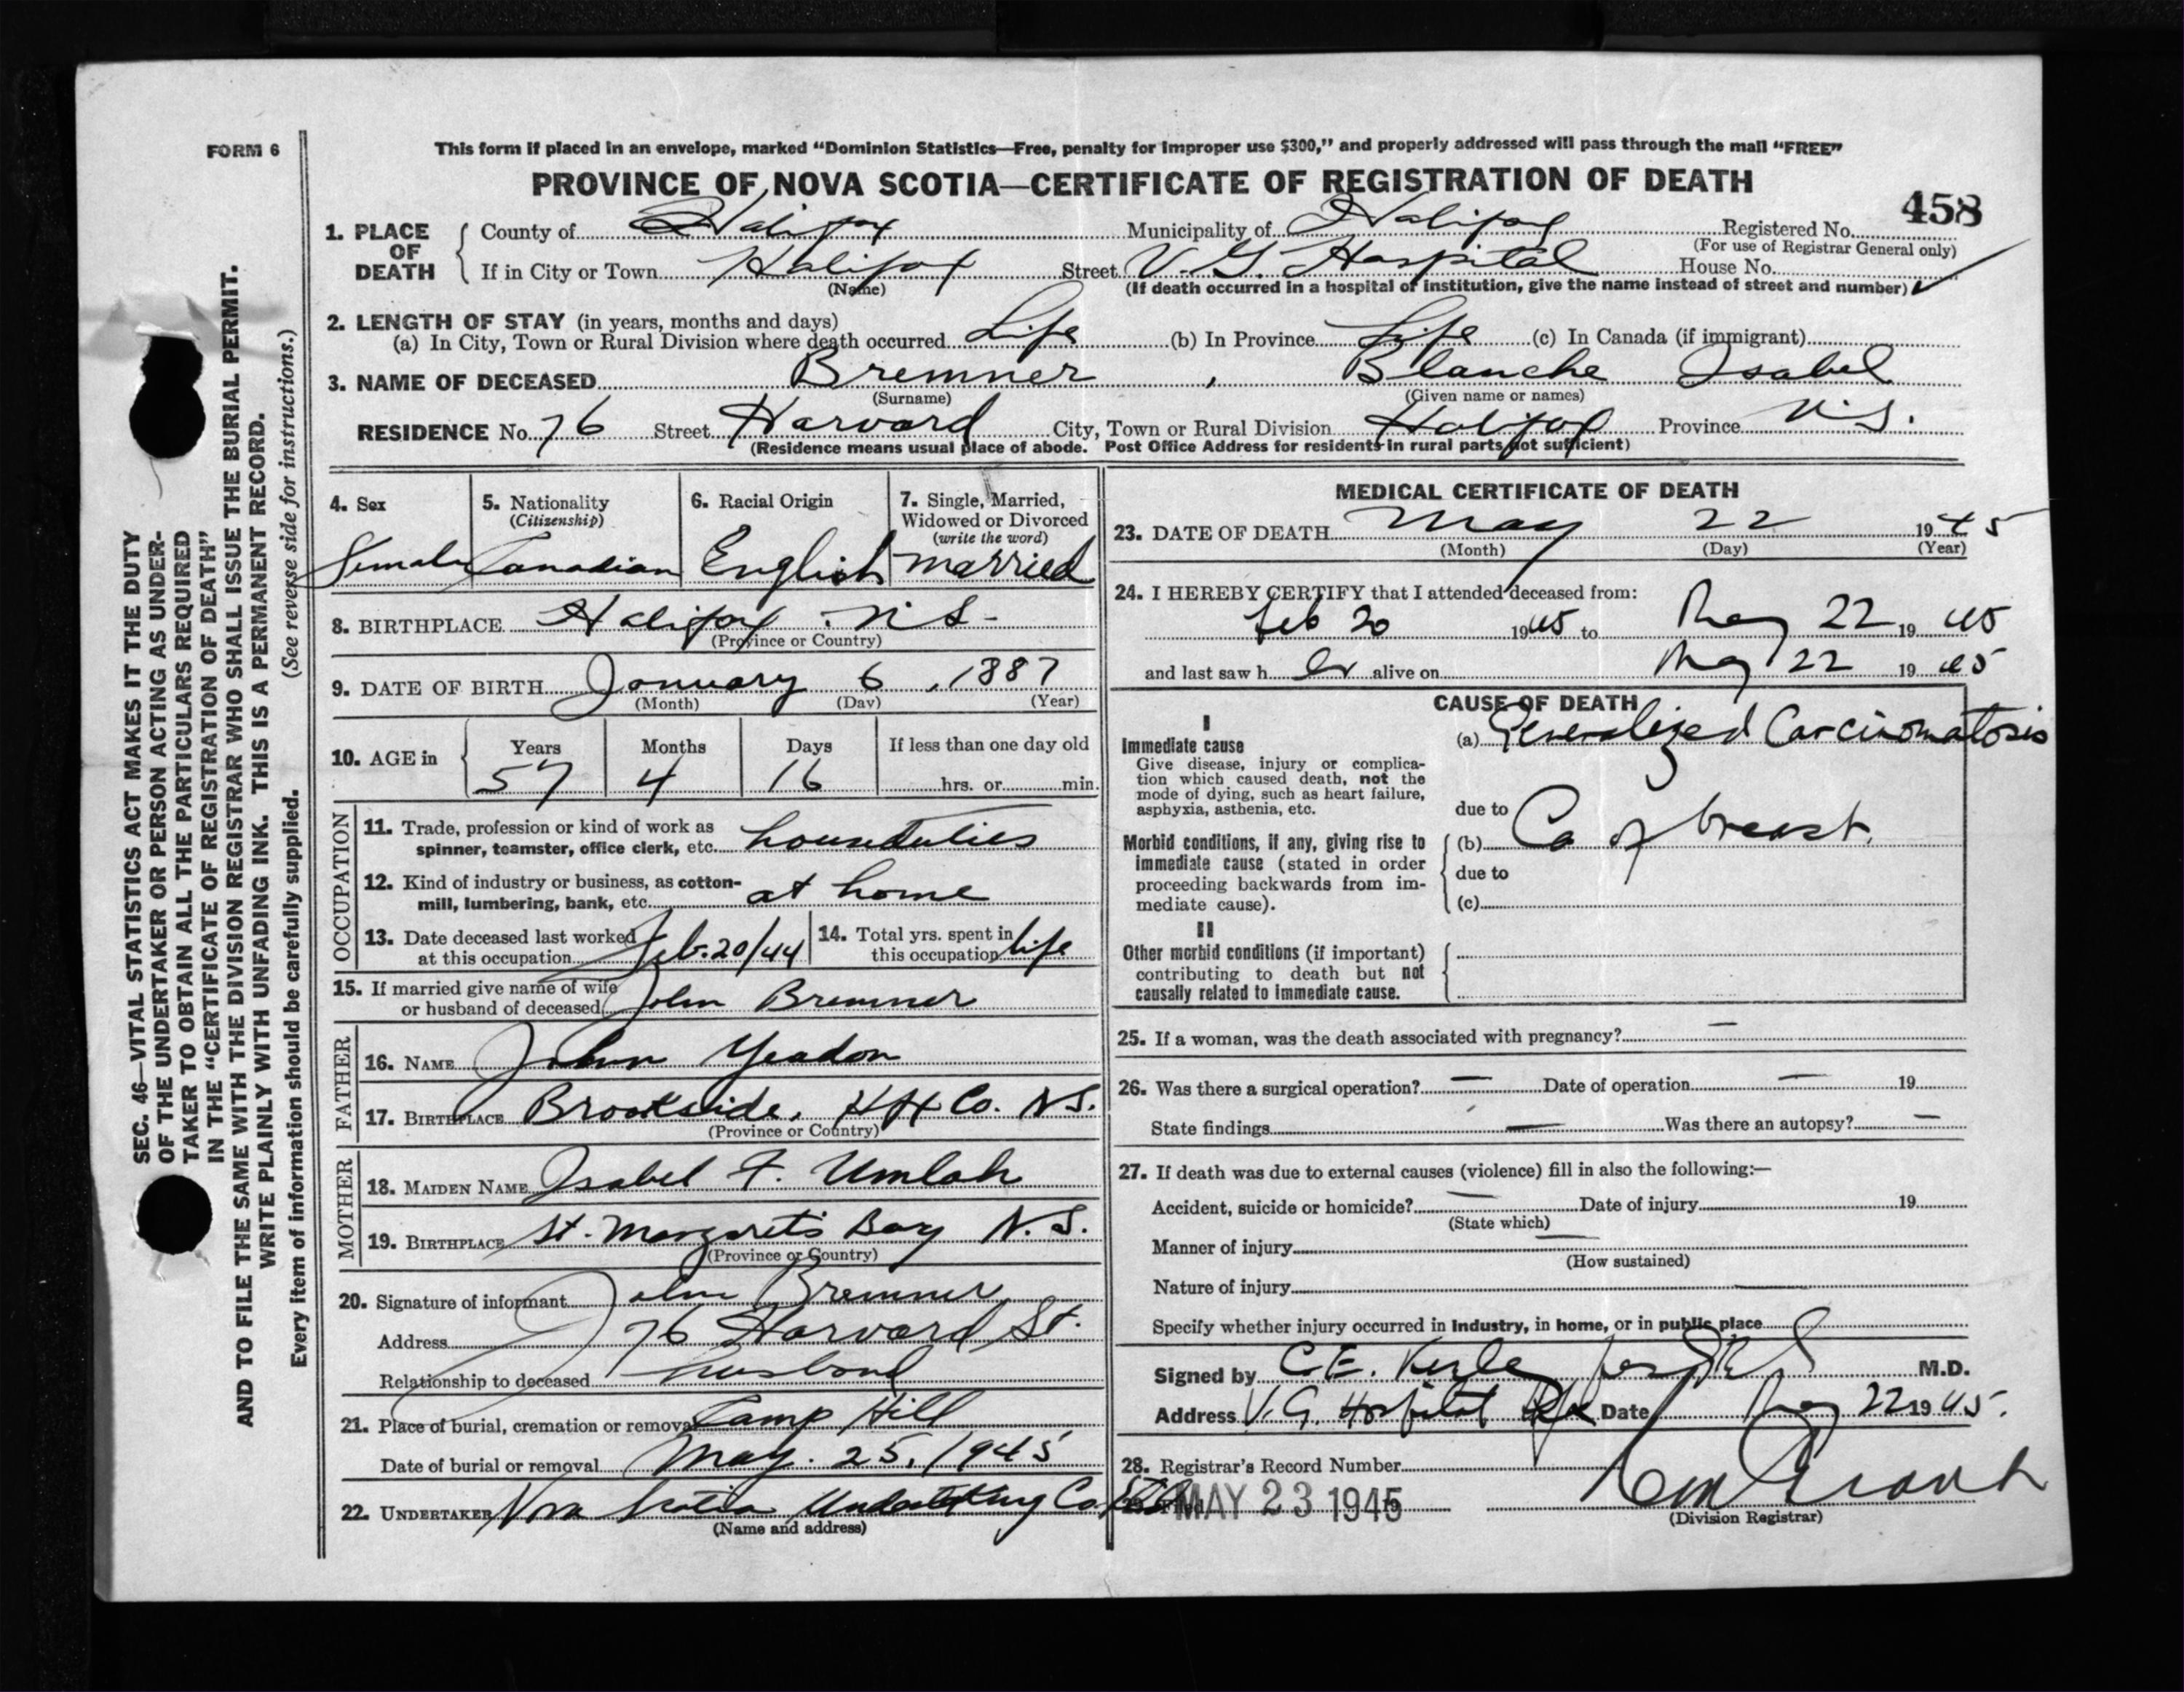 FORM 6
This form if placed in an envelope, marked “Dominion Statistics—Free, penalty for improper use $300,” and properly addressed will pass through the mail “FREE”
PROVINCE OF NOVA SCOTIA—CERTIFICATE OF REGISTRATION OF DEATH
458
1. PLACE OF DEATH
County of Halifax Municipality of Halifax Registered No.
(For use of Registrar General only)
If in City or Town Halifax Street V. G. Hospital House No.
(Name) (If death occurred in a hospital or institution, give the name instead of street and number)
2. LENGTH OF STAY (in years, months and days)
(a) In City, Town or Rural Division where death occurred Life (b) In Province Life (c) In Canada (if immigrant)
3. NAME OF DECEASED Bremner , Blanche Isabel
(Surname) (Given name or names)
RESIDENCE No. 76 Street Harvard City, Town or Rural Division Halifax Province N.S.
(Residence means usual place of abode. Post Office Address for residents in rural parts not sufficient)
4. Sex
Female
5. Nationality
(Citizenship)
Canadian
6. Racial Origin
English
7. Single, Married,
Widowed or Divorced
(write the word)
married
8. BIRTHPLACE Halifax . N S -
(Province or Country)
9. DATE OF BIRTH January 6 , 1887
(Month) (Day) (Year)
10. AGE in
Years Months Days If less than one day old
57 4 16 hrs. or min.
OCCUPATION
11. Trade, profession or kind of work as
spinner, teamster, office clerk, etc. houseduties
12. Kind of industry or business, as cotton-
mill, lumbering, bank, etc. at home
13. Date deceased last worked
at this occupation Feb. 20/44
14. Total yrs. spent in
this occupation life
15. If married give name of wife
or husband of deceased John Bremner
FATHER
16. NAME John Yeadon
17. BIRTHPLACE Brookside, Hfx Co. N.S.
(Province or Country)
MOTHER
18. MAIDEN NAME Isabel F. Umlah
19. BIRTHPLACE St. Margaret's Bay N.S.
(Province or Country)
20. Signature of informant John Bremner
Address 76 Harvard St.
Relationship to deceased husband
21. Place of burial, cremation or removal Camp Hill
Date of burial or removal May. 25, 1945
22. UNDERTAKER Nova Scotia Undertaking Co.
(Name and address)
MEDICAL CERTIFICATE OF DEATH
23. DATE OF DEATH May 22 1945
(Month) (Day) (Year)
24. I HEREBY CERTIFY that I attended deceased from:
Feb 20 1945 to May 22 1945
and last saw her alive on May 22 1945
CAUSE OF DEATH
I
Immediate cause
Give disease, injury or complica-
tion which caused death, not the
mode of dying, such as heart failure,
asphyxia, asthenia, etc.
(a) Generalized Carcinomatosis
due to
Morbid conditions, if any, giving rise to
immediate cause (stated in order
proceeding backwards from im-
mediate cause).
(b) Ca of breast.
due to
(c)
II
Other morbid conditions (if important)
contributing to death but not
causally related to immediate cause.
25. If a woman, was the death associated with pregnancy? —
26. Was there a surgical operation? — Date of operation — 19
State findings — Was there an autopsy? —
27. If death was due to external causes (violence) fill in also the following:—
Accident, suicide or homicide? — Date of injury 19
(State which)
Manner of injury —
(How sustained)
Nature of injury —
Specify whether injury occurred in industry, in home, or in public place
Signed by C.E. M.D.
Address V.G. Hospital Hfx Date May 22 1945.
28. Registrar's Record Number
29. Filed MAY 23 1945 19
(Division Registrar)
SEC. 46—VITAL STATISTICS ACT MAKES IT THE DUTY
OF THE UNDERTAKER OR PERSON ACTING AS UNDER-
TAKER TO OBTAIN ALL THE PARTICULARS REQUIRED
IN THE “CERTIFICATE OF REGISTRATION OF DEATH”
AND TO FILE THE SAME WITH THE DIVISION REGISTRAR WHO SHALL ISSUE THE BURIAL PERMIT.
WRITE PLAINLY WITH UNFADING INK. THIS IS A PERMANENT RECORD.
Every item of information should be carefully supplied. (See reverse side for instructions.)